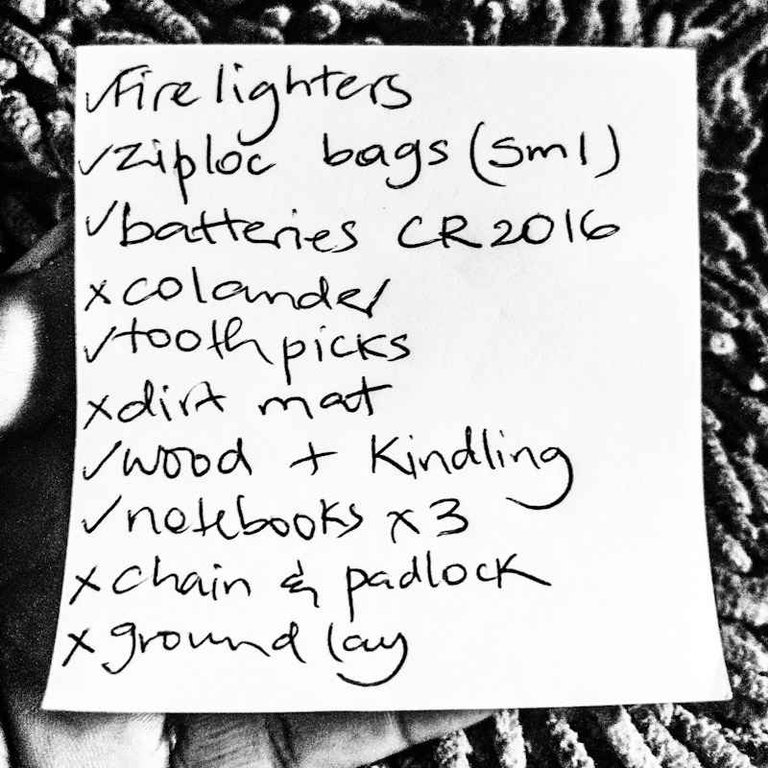 ✓firelighters
✓ziploc bags (sml)
✓batteries CR2016
×colander
✓toothpicks
×dirt mat
✓wood + kindling
✓notebooks x3
×chain & padlock
×ground lay